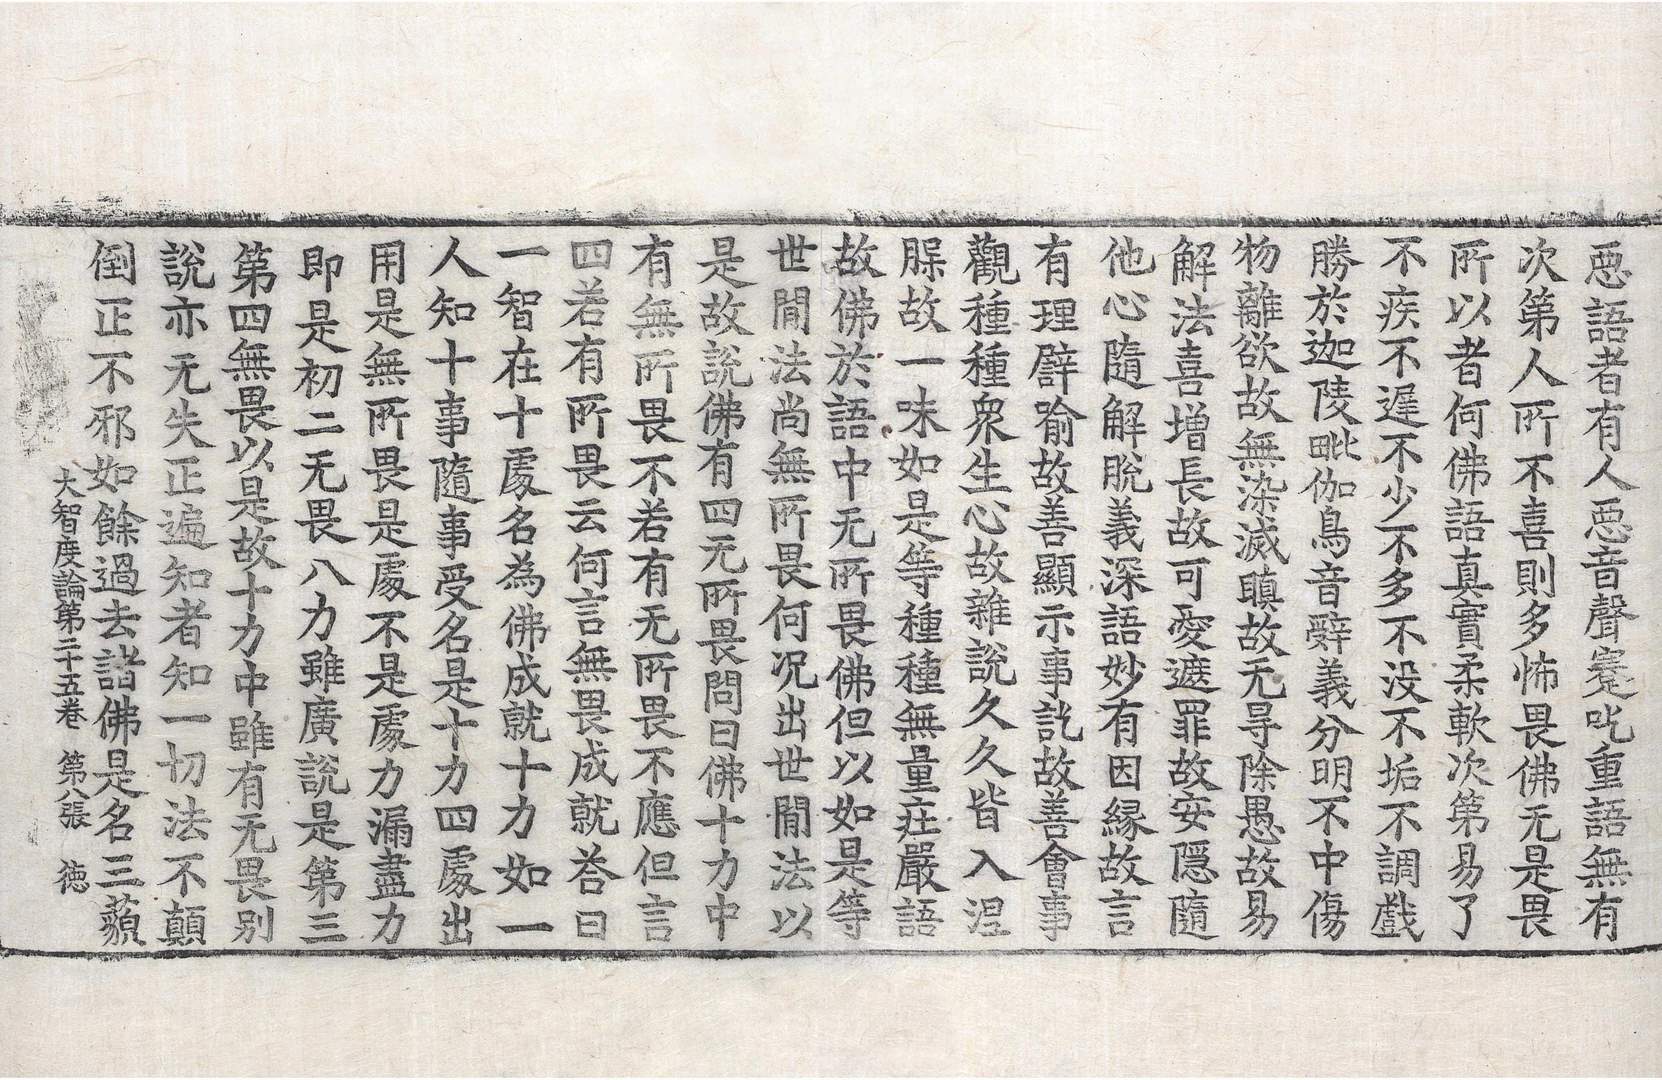 惡語者有人惡音聲蹇吃重語無有
次第人所不喜則多怖畏佛无是畏
所以者何佛語真實柔軟次第易了
不疾不遲不少不多不没不垢不調戲
勝於迦陵毗伽鳥音辭義分明不中傷
物離欲故無染滅瞋故无㝵除愚故易
解法喜增長故可愛遮罪故安隱隨
他心隨解脫義深語妙有因緣故言
有理譬喻故善顯示事訖故善會事
觀種種衆生心故雜說久久皆入涅
槃故一味如是等種種無量莊嚴語
故佛於語中无所畏佛但以如是等
世閒法尚無所畏何況出世閒法以
是故說佛有四无所畏問曰佛十力中
有無所畏不若有无所畏不應但言
四若有所畏云何言無畏成就荅曰
一智在十處名為佛成就十力如一
人知十事隨事受名是十力四處出
用是無所畏是處不是處力漏盡力
即是初二无畏八力雖廣說是第三
第四無畏以是故十力中雖有无畏别
說亦无失正遍知者知一切法不顛
倒正不邪如餘過去諸佛是名三藐
大智度論第二十五卷 第八張 徳